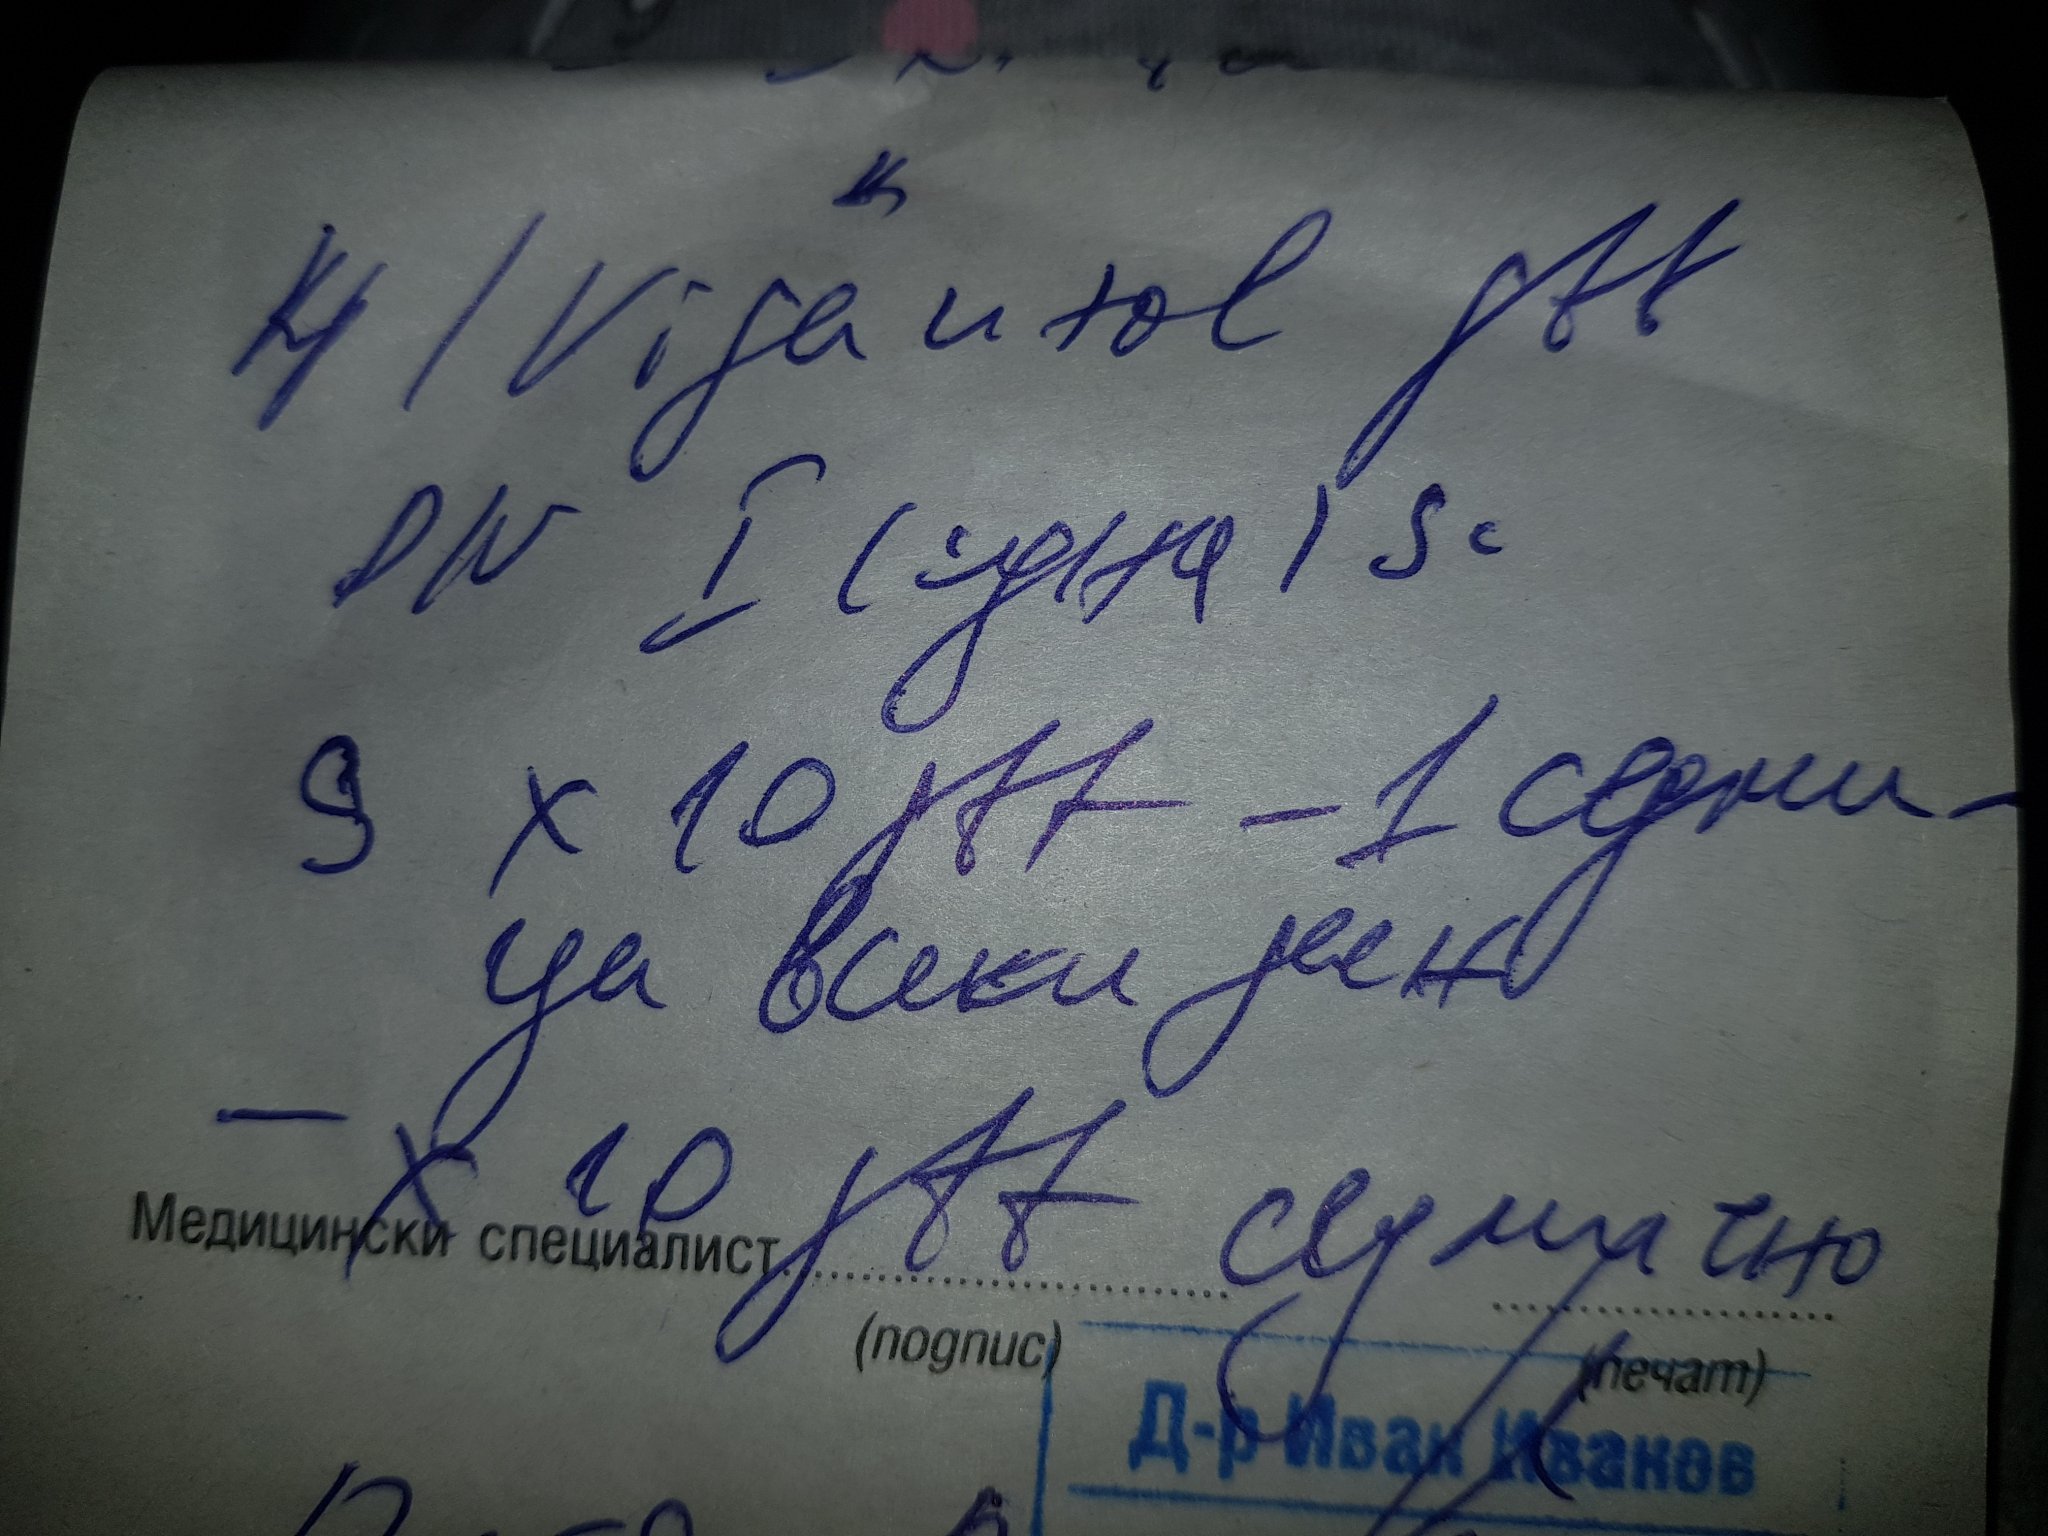 4/ Vigantol gtt
DN I (една) s.
S x 10 gtt - 1 седми-
ца всеки ден
- x 10 gtt седмично
Медицински специалист
(подпис)
(печат)
Д-р Иван Иванов